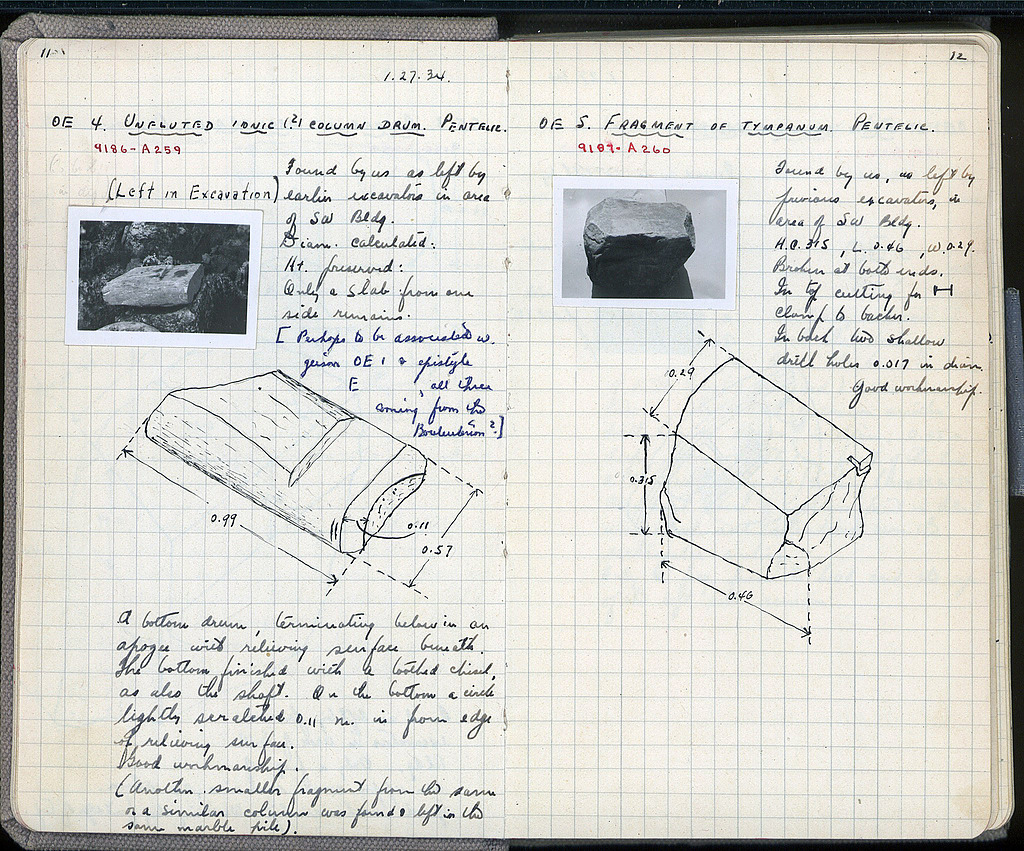 11
1.27.34.
OE 4. UNFLUTED IONIC (?) COLUMN DRUM. PENTELIC.
9186-A259
(Left in Excavation)
Found by us as left by
earlier excavators in area
of SW Bldg.
Diam. calculated:
Ht. preserved:
Only a slab from one
side remains.
[Perhaps to be associated w.
geison OE 1 & epistyle
E , all three
coming from the
Bouleuterion?]
0.99
0.11
0.57
A bottom drum, terminating below in an
apogee with relieving surface beneath.
The bottom finished with a toothed chisel,
as also the shaft. On the bottom a circle
lightly scratched 0.11 m. in from edge
of relieving surface.
Good workmanship.
(Another smaller fragment from the same
or a similar column was found & left in the
same marble pile).
12
OE 5. FRAGMENT OF TYMPANUM. PENTELIC.
9187-A260
Found by us, as left by
previous excavators, in
area of SW Bldg.
H.0.315, L. 0.46, W.0.29.
Broken at both ends.
In top cutting for H
clamp to backer.
In back two shallow
drill holes 0.017 in diam.
Good workmanship.
0.29
0.315
0.46